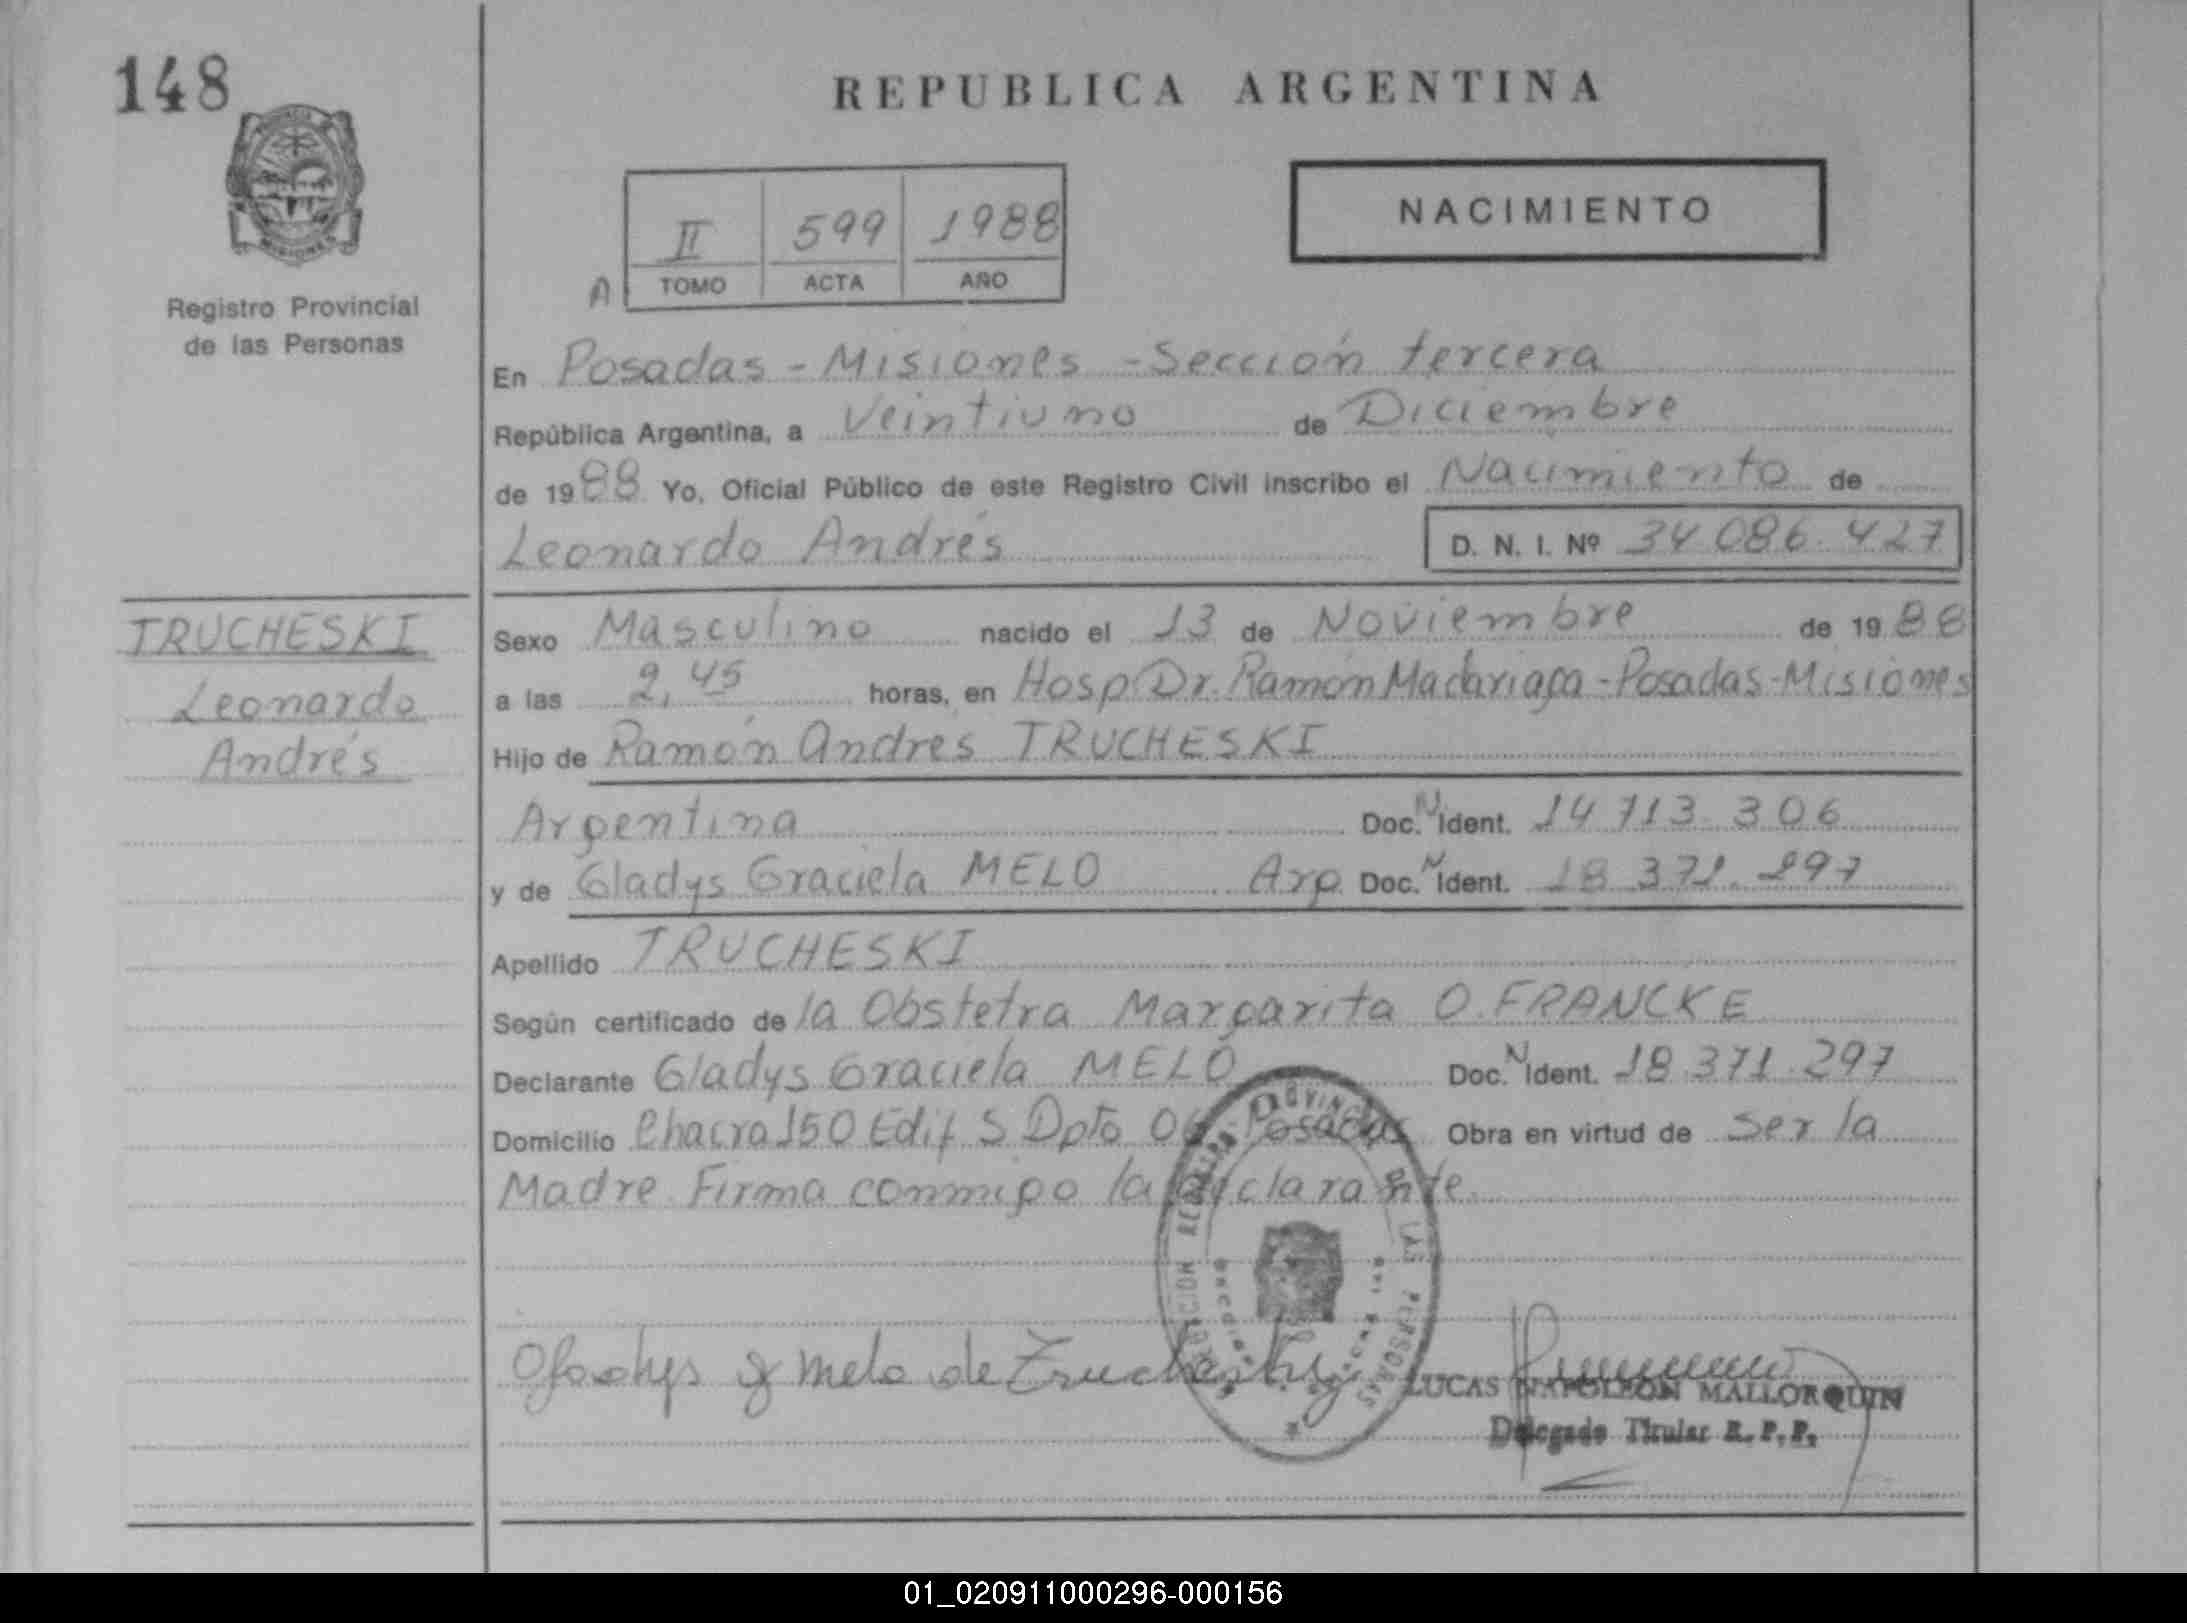 148
REPUBLICA ARGENTINA
NACIMIENTO
II 599 1988
A TOMO ACTA AÑO
Registro Provincial
de las Personas
En Posadas - Misiones - Sección tercera
República Argentina, a Veintiuno de Diciembre
de 1988 Yo, Oficial Público de este Registro Civil inscribo el Nacimiento de
Leonardo Andrés D. N. I. Nº 34 086. 427
TRUCHESKI
Leonardo
Andrés
Sexo Masculino nacido el 13 de Noviembre de 1988
a las 2,45 horas, en Hosp. Dr. Ramón Madariaga - Posadas - Misiones
Hijo de Ramón Andres TRUCHESKI
Argentina Doc. N Ident. 14 713 306
y de Gladys Graciela MELO Arg. Doc. N Ident. 18 371. 297
Apellido TRUCHESKI
Según certificado de la Obstetra Margarita O. FRANCKE
Declarante Gladys Graciela MELO Doc. N Ident. 18 371 297
Domicilio Chacra 150 Edif S Dpto 06 Posadas Obra en virtud de ser la
Madre. Firma conmigo la declarante
REGISTRO PROVINCIAL DE LAS PERSONAS
Gladys G Melo de Trucheski
LUCAS NAPOLEON MALLORQUIN
Delegado Titular R. P. P.
01_020911000296-000156